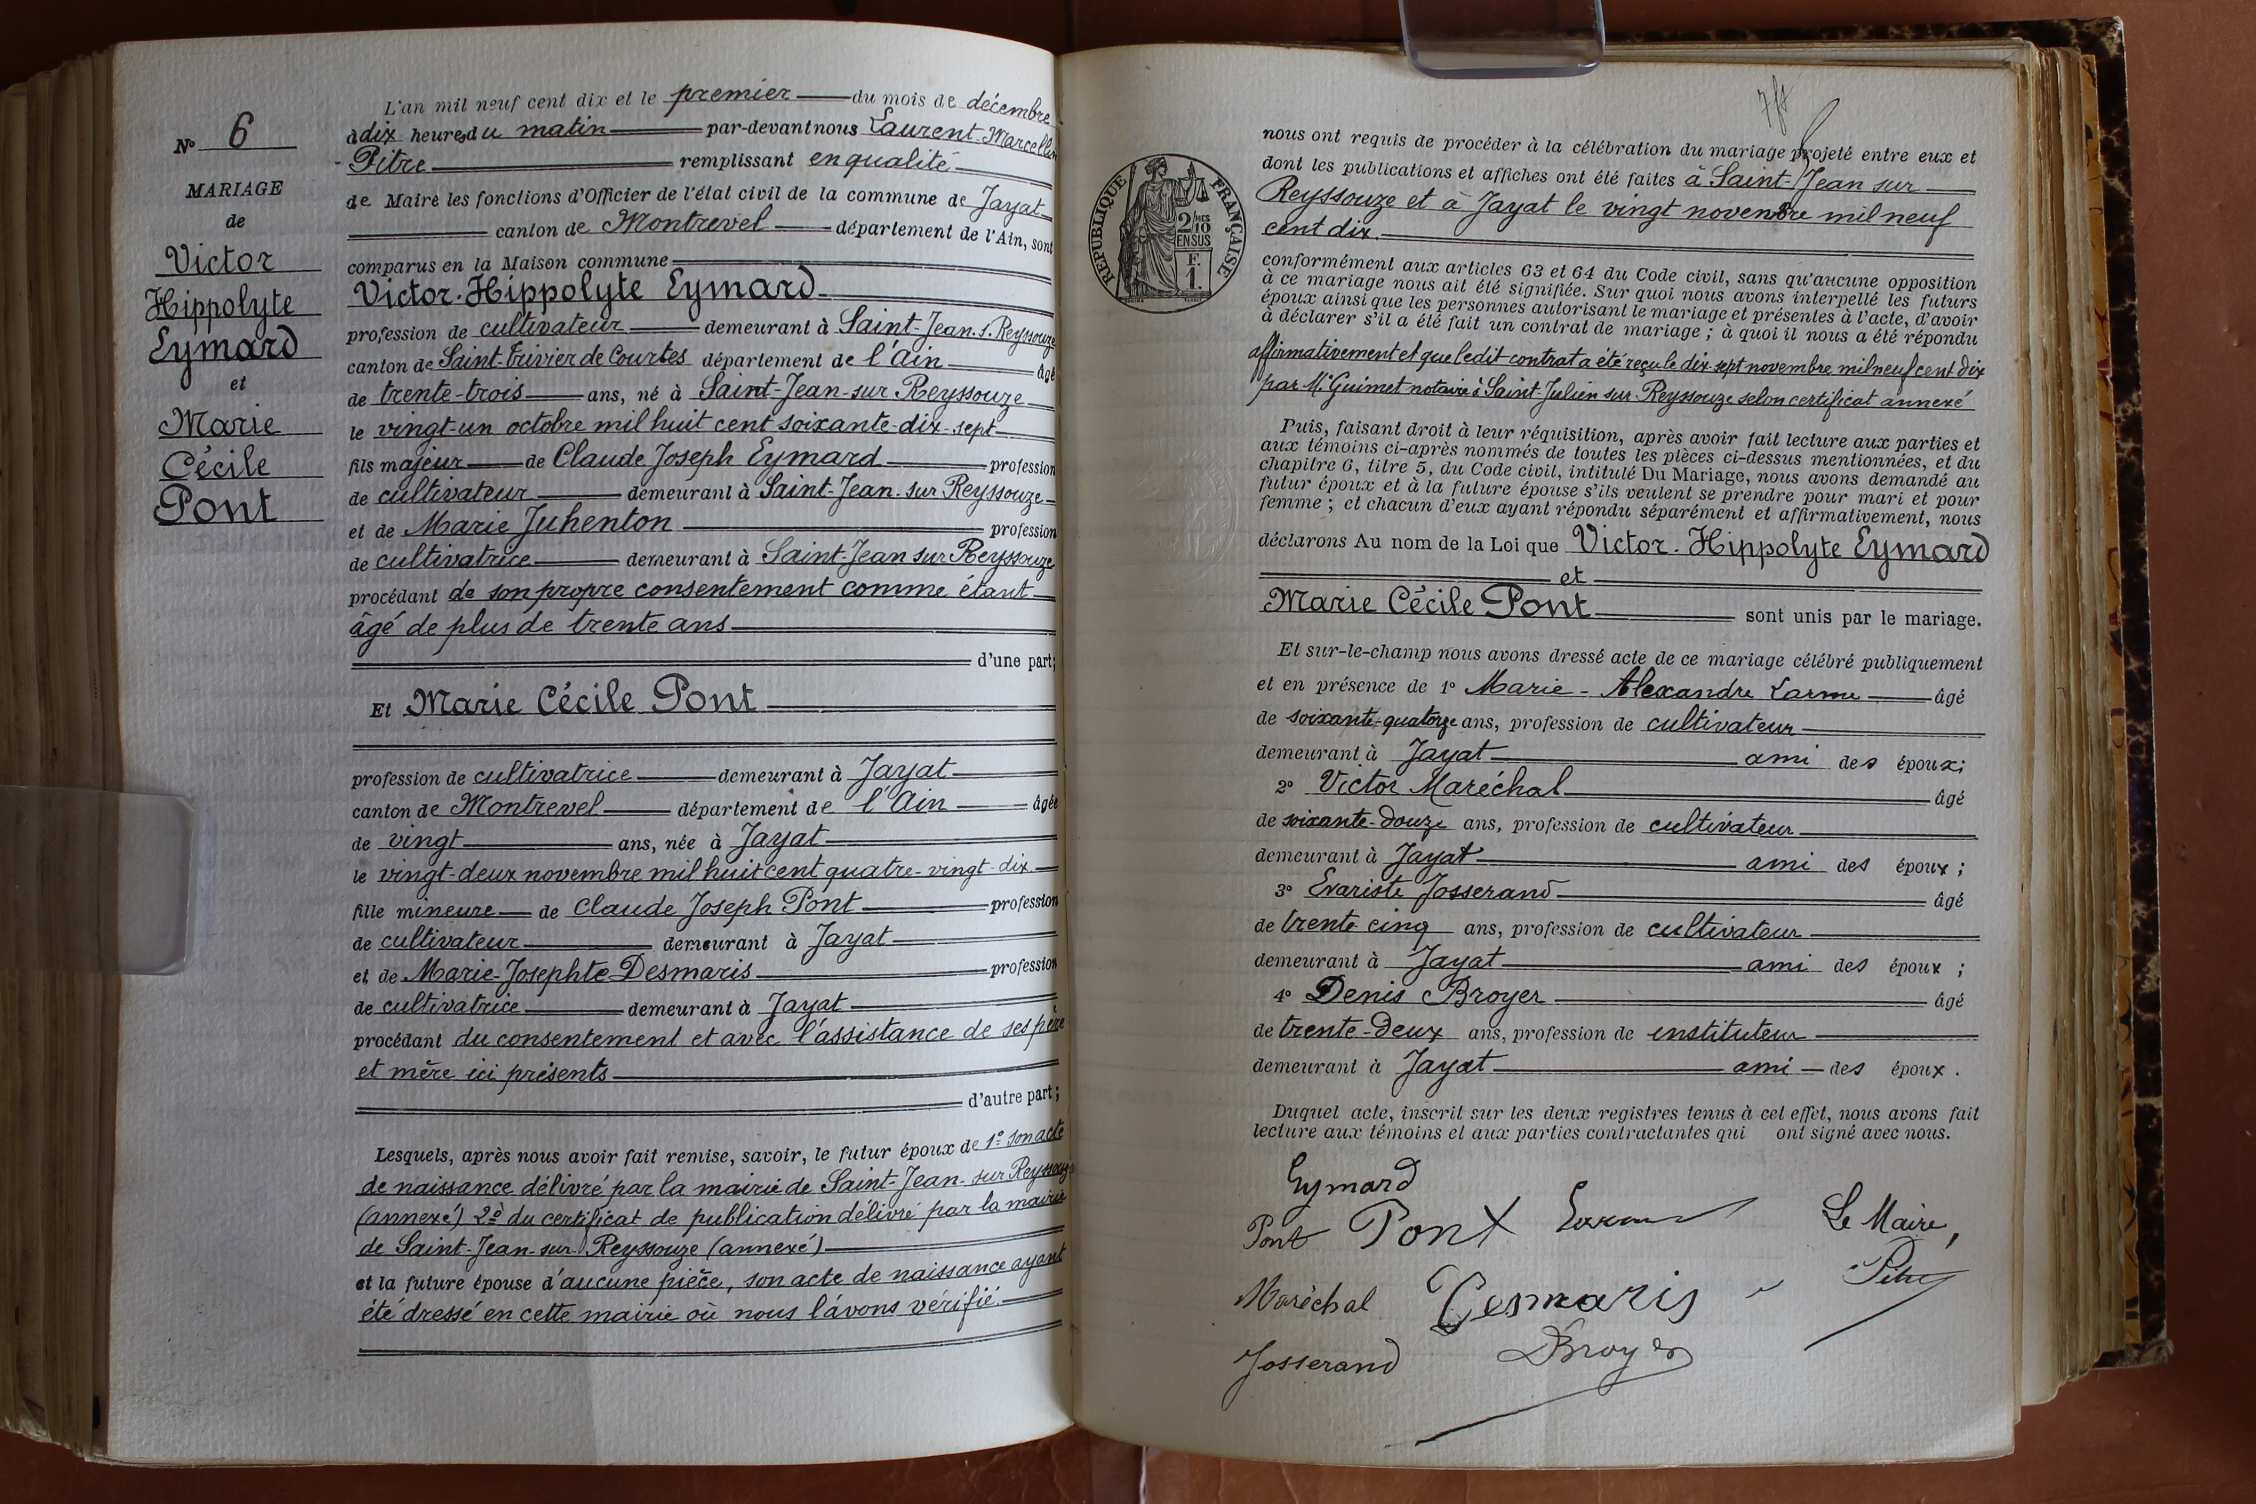 N° 6
MARIAGE
de
Victor
Hippolyte
Eymard
et
Marie
Cécile
Pont
L'an mil neuf cent dix et le premier du mois de décembre
à dix heures du matin par-devant nous Laurent-Marcellin
Pitre remplissant en qualité
de Maire les fonctions d'Officier de l'état civil de la commune de Jayat
canton de Montrevel département de l'Ain, sont
comparus en la Maison commune
Victor-Hippolyte Eymard
profession de cultivateur demeurant à Saint-Jean-s.-Reyssouze
canton de Saint-Trivier de Courtes département de l'Ain âgé
de trente-trois ans, né à Saint-Jean-sur-Reyssouze
le vingt-un octobre mil huit cent soixante-dix-sept
fils majeur de Claude Joseph Eymard profession
de cultivateur demeurant à Saint-Jean-sur Reyssouze
et de Marie Juhenton profession
de cultivatrice demeurant à Saint-Jean sur Reyssouze
procédant de son propre consentement comme étant
âgé de plus de trente ans
d'une part;
Et Marie Cécile Pont
profession de cultivatrice demeurant à Jayat
canton de Montrevel département de l'Ain âgée
de vingt ans, née à Jayat
le vingt-deux novembre mil huit cent quatre-vingt-dix
fille mineure de Claude Joseph Pont profession
de cultivateur demeurant à Jayat
et de Marie-Josephte Desmaris profession
de cultivatrice demeurant à Jayat
procédant du consentement et avec l'assistance de ses père
et mère ici présents
d'autre part;
Lesquels, après nous avoir fait remise, savoir, le futur époux de 1° son acte
de naissance délivré par la mairie de Saint-Jean-sur Reyssouze
(annexé) 2° du certificat de publication délivré par la mairie
de Saint-Jean-sur-Reyssouze (annexé)
et la future épouse d'aucune pièce, son acte de naissance ayant
été dressé en cette mairie où nous l'avons vérifié.
RÉPUBLIQUE FRANÇAISE
2/10
EN SUS
F.
1.
nous ont requis de procéder à la célébration du mariage projeté entre eux et
dont les publications et affiches ont été faites à Saint-Jean sur
Reyssouze et à Jayat le vingt novembre mil neuf
cent dix
conformément aux articles 63 et 64 du Code civil, sans qu'aucune opposition
à ce mariage nous ait été signifiée. Sur quoi nous avons interpellé les futurs
époux ainsi que les personnes autorisant le mariage et présentes à l'acte, d'avoir
à déclarer s'il a été fait un contrat de mariage; à quoi il nous a été répondu
affirmativement et que ledit contrat a été reçu le dix-sept novembre mil neuf cent dix
par Me Guimet notaire à Saint-Julien sur Reyssouze selon certificat annexé
Puis, faisant droit à leur réquisition, après avoir fait lecture aux parties et
aux témoins ci-après nommés de toutes les pièces ci-dessus mentionnées, et du
chapitre 6, titre 5, du Code civil, intitulé Du Mariage, nous avons demandé au
futur époux et à la future épouse s'ils veulent se prendre pour mari et pour
femme; et chacun d'eux ayant répondu séparément et affirmativement, nous
déclarons Au nom de la Loi que Victor-Hippolyte Eymard
et
Marie Cécile Pont sont unis par le mariage.
Et sur-le-champ nous avons dressé acte de ce mariage célébré publiquement
et en présence de 1° Marie-Alexandre âgé
de soixante-quatorze ans, profession de cultivateur
demeurant à Jayat ami des époux;
2° Victor Maréchal âgé
de soixante-douze ans, profession de cultivateur
demeurant à Jayat ami des époux;
3° Evariste Josserand âgé
de trente cinq ans, profession de cultivateur
demeurant à Jayat ami des époux;
4° Denis Broyer âgé
de trente-deux ans, profession de instituteur
demeurant à Jayat ami des époux.
Duquel acte, inscrit sur les deux registres tenus à cet effet, nous avons fait
lecture aux témoins et aux parties contractantes qui ont signé avec nous.
Eymard
Pont Pont Le Maire,
Maréchal Desmaris Pitre
Josserand DBroyer